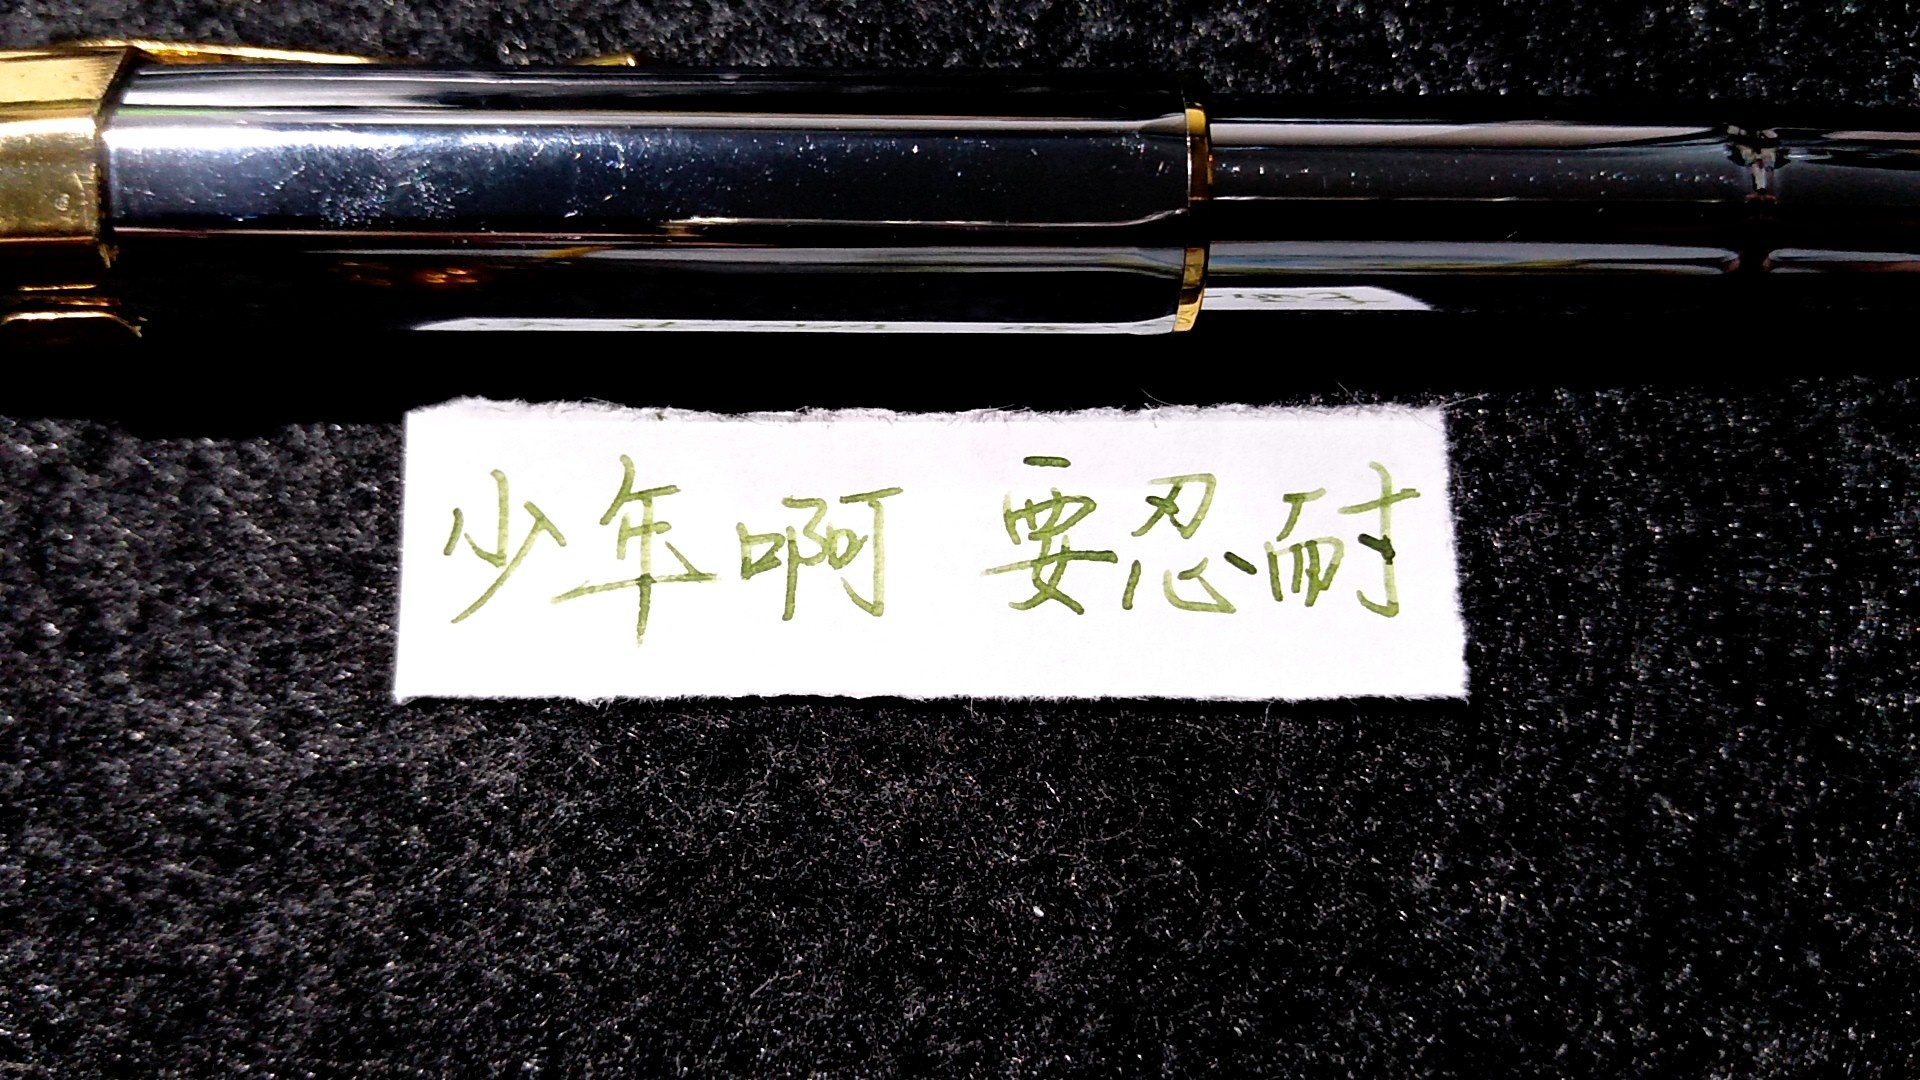 少年啊 要忍耐